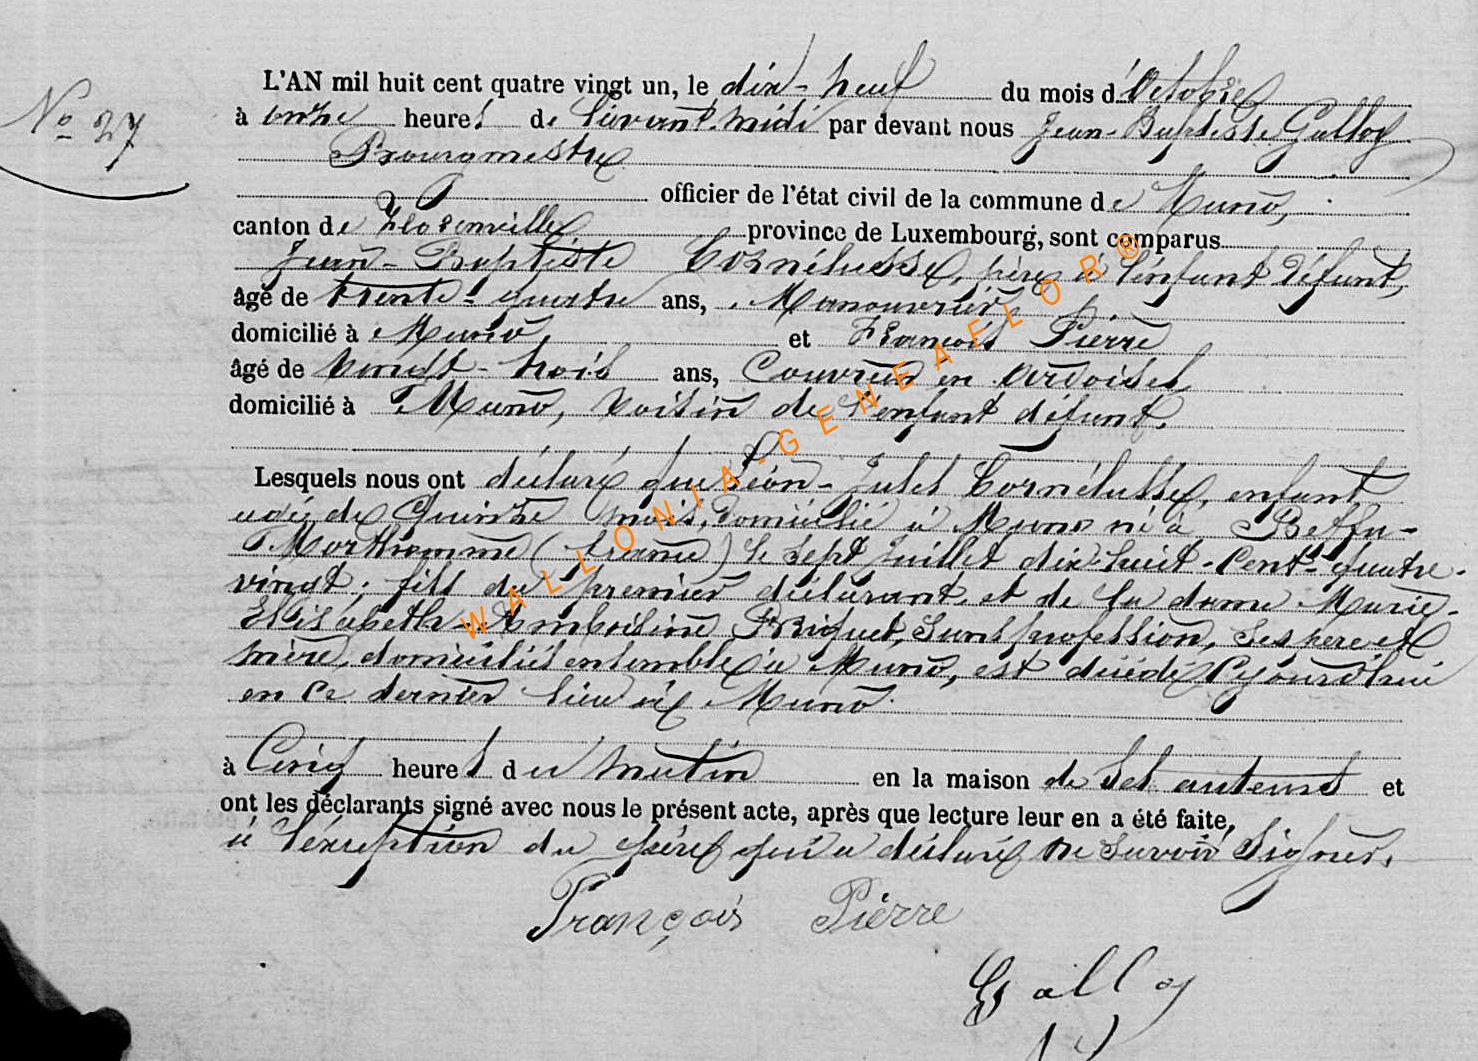 No 27
L'AN mil huit cent quatre vingt un, le dix-neuf du mois d'Octobre
à onze heures de l'avant-midi par devant nous Jean-Baptiste Galloy
Bourgmestre
officier de l'état civil de la commune de Muno,
canton de Florenville province de Luxembourg, sont comparus
Jean-Baptiste Cornélusse, père à l'enfant défunt,
âgé de trente-quatre ans, Manouvrier,
domicilié à Muno et François Pierre
âgé de vingt-trois ans, Couvreur en ardoises
domicilié à Muno, voisin de l'enfant défunt.
Lesquels nous ont déclaré que Léon-Jules Cornélusse, enfant
agé de Quinze mois, domicilié à Muno né à Beffu-
Morthomme (france) le sept Juillet dix-huit-Cent-quatre-
vingt; fils du premier déclarant, et de la dame Marie-
Elisabeth- Briquet, sans profession, ses père et
mère, domiciliés ensemble à Muno, est décédé Cejourd'hui
en ce dernier lieu de Muno.
à Cinq heures du matin en la maison de ses auteurs et
ont les déclarants signé avec nous le présent acte, après que lecture leur en a été faite,
à l'exception du père qui a déclaré ne savoir signer.
François Pierre
Galloy
WALLONIA-GENEAELOR®